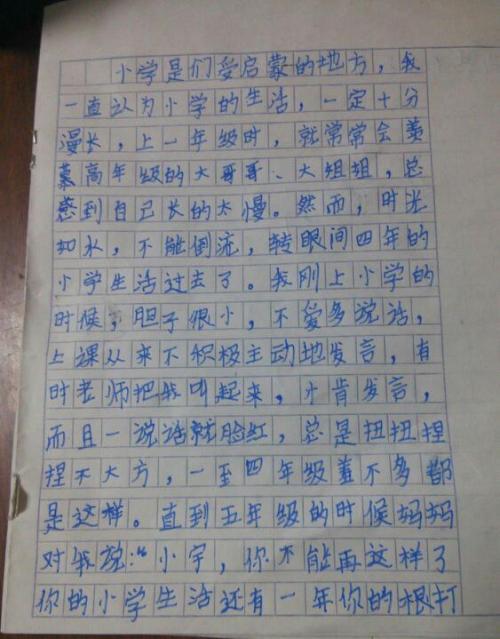 小学是们受启蒙的地方，我
一直认为小学的生活，一定十分
漫长，上一年级时，就常常会羡
慕高年级的大哥哥、大姐姐，总
感到自己长的太慢。然而，时光
如水，不能倒流，转眼间四年的
小学生活过去了。我刚上小学的
时候，胆子很小，不爱多说话，
上课从来不积极主动地发言，有
时老师把我叫起来，才肯发言，
而且一说话就脸红，总是扭扭捏
捏不大方，一至四年级差不多都
是这样。直到五年级的时候妈妈
对我说：“小宇，你不能再这样了
你的小学生活还有一年你的根打